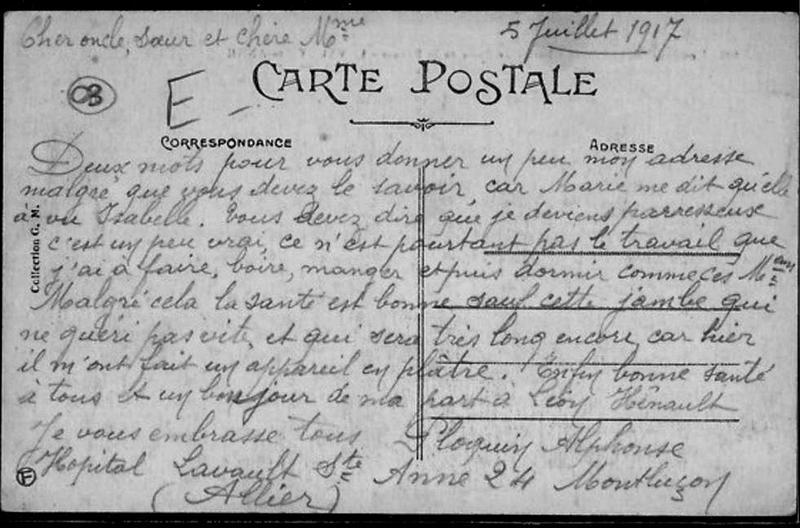 Cher oncle, sœur et chère Mme 5 Juillet 1917
CB
E -
CARTE POSTALE
CORRESPONDANCE ADRESSE
Deux mots pour vous donner un peu mon adresse
malgré que vous devez le savoir, car Marie me dit qu'elle
à vu Isabelle. Vous devez dire que je deviens parresseux
c'est un peu vrai, ce n'est pourtant pas le travail que
j'ai à faire, boire, manger et puis dormir comme ces Mans
Malgré cela la santé est bonne sauf cette jambe qui
ne guéri pas vite, et qui sera très long encore, car hier
il m'ont fait un appareil en plâtre. Enfin bonne santé
à tous et un bonjour de ma part à Léon Hénault
Je vous embrasse tous Ploquin Alphonse
Hopital Lavault Ste Anne 24 Montluçon
(Allier)
Collection G. M.
F